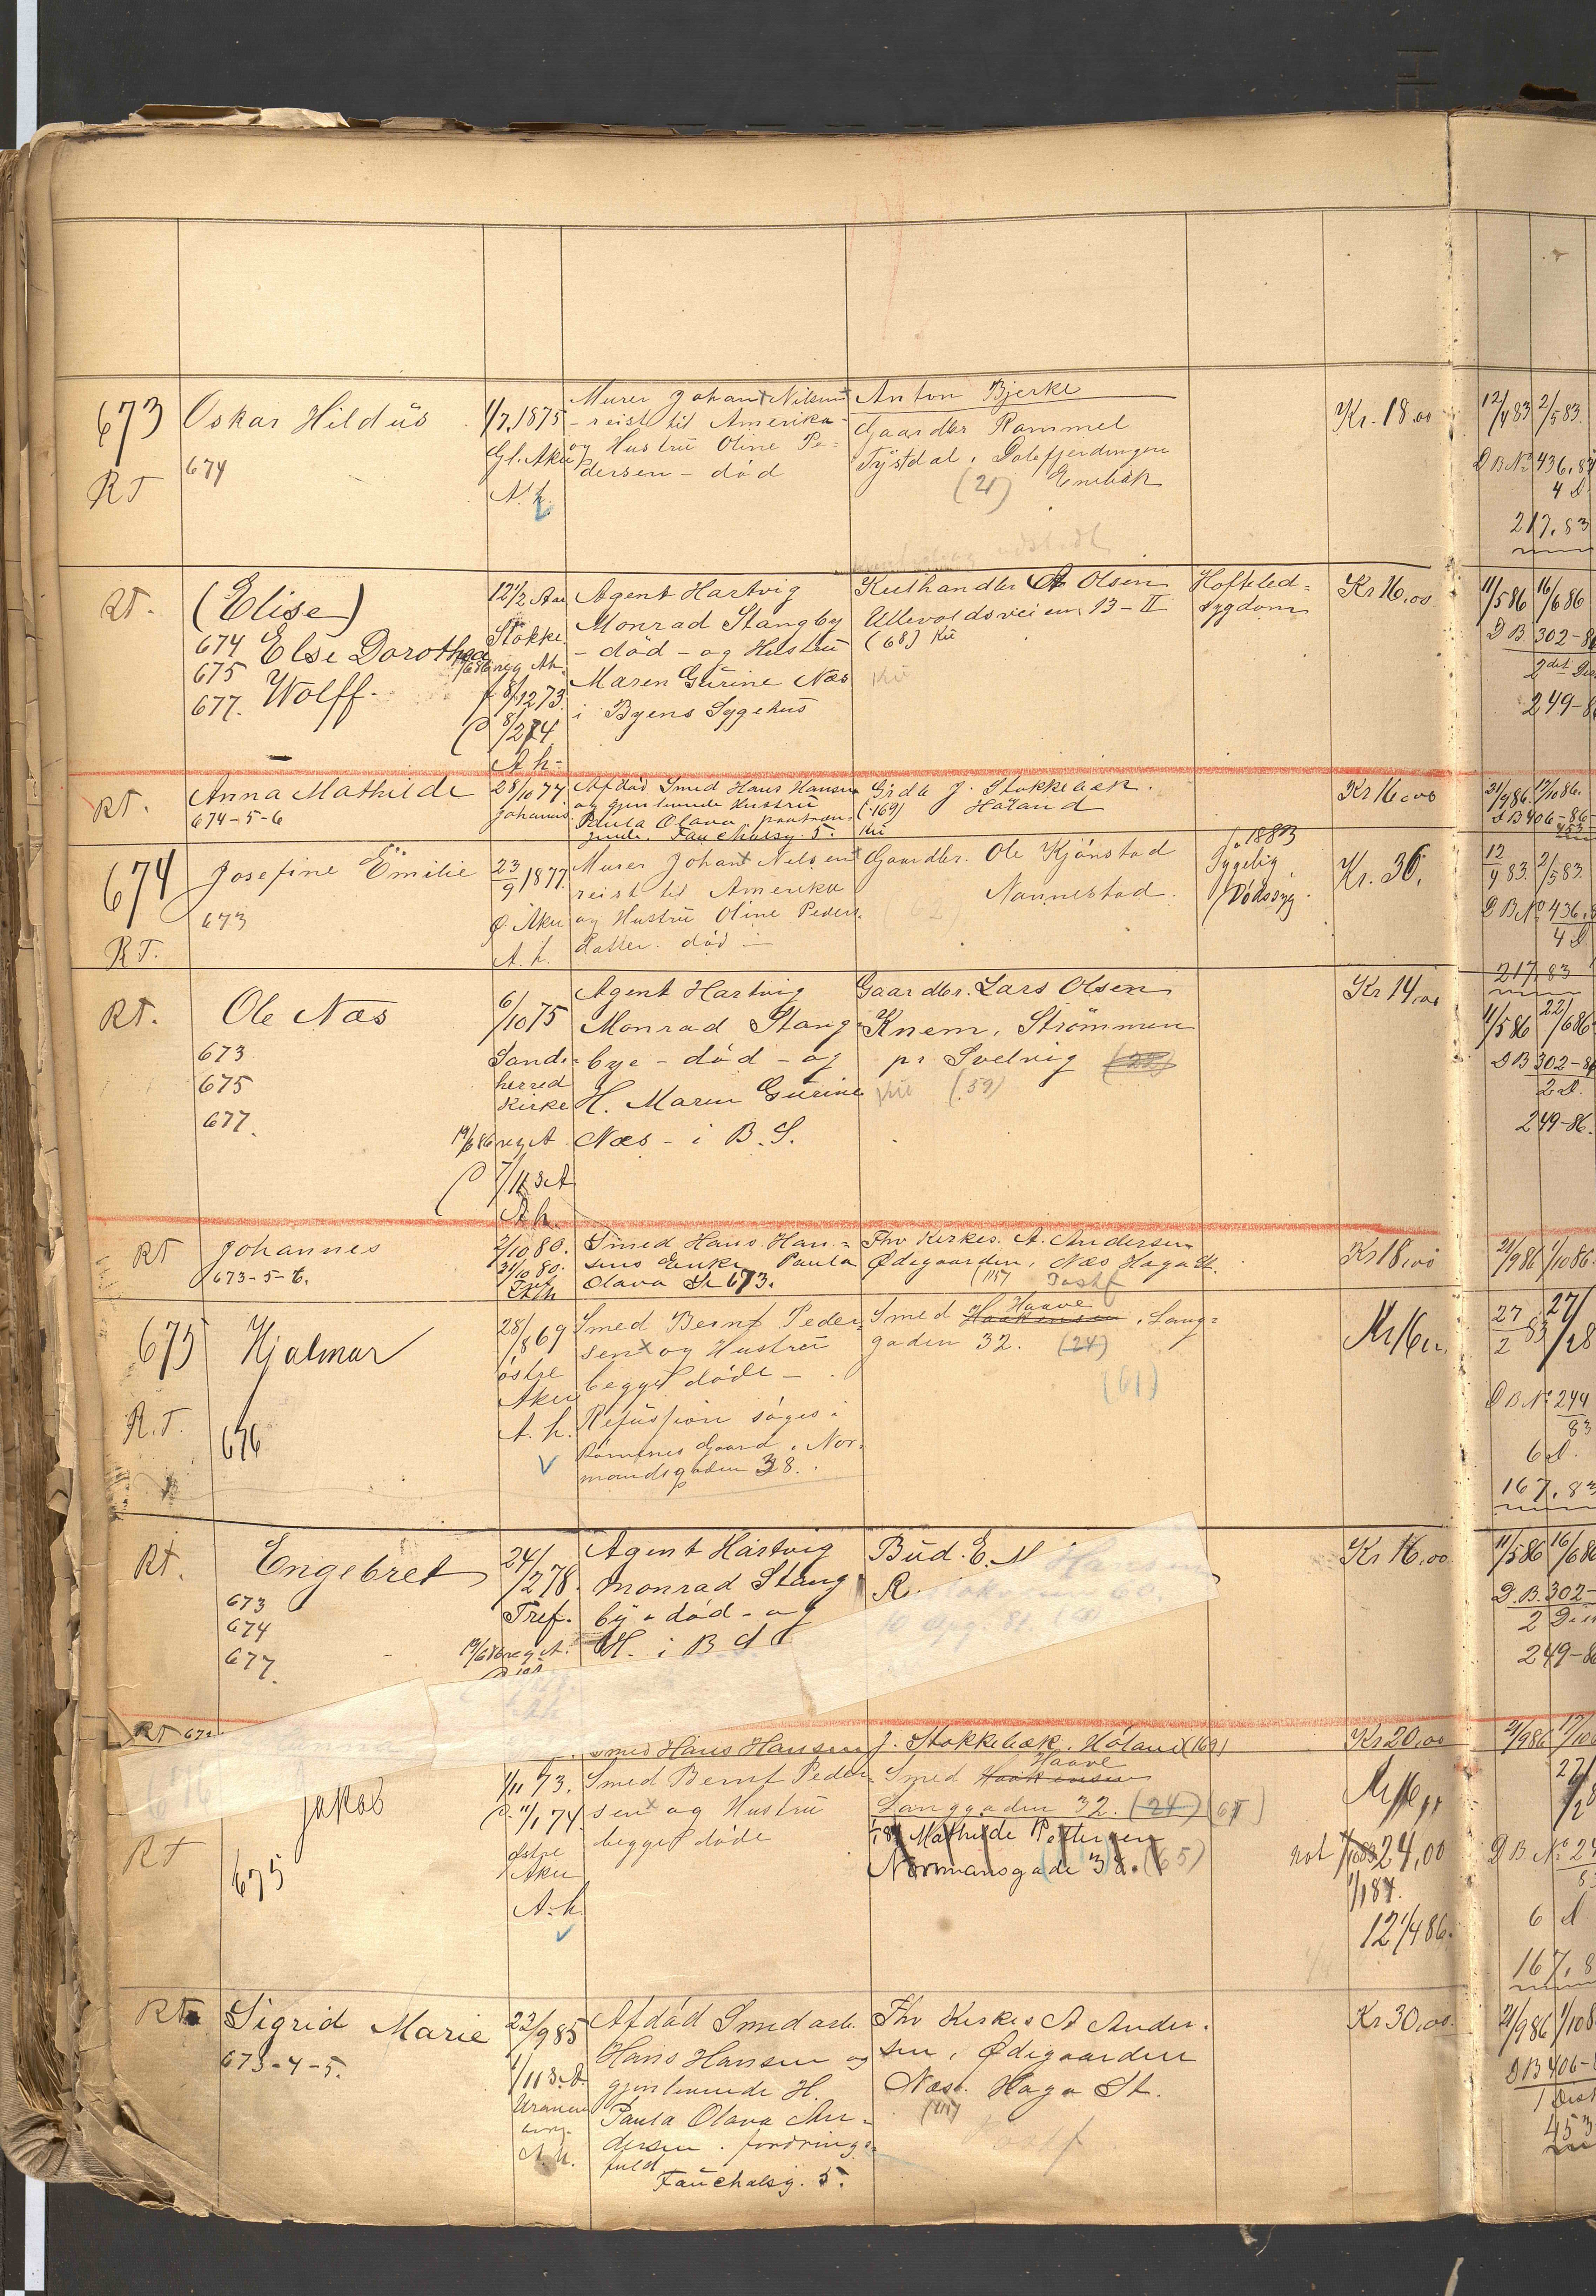 673
RT
Oskar Hildus
674
1/7.1875
Gl. Aker
A.h.
Murer Johan Nilsen
- reist til Amerika -
og Hustru Oline Pe-
dersen - död
Anton Bjerke
Gaardbr Rammel
Tystdal, Dalefjerdingen
(21) Enebak
Kr. 18.00
12/4 83 2/5 83.
DBNo 436,83
4 D.
217.83
Rt.
(Elise)
674 Else Dorothea
675
677. Wolff.
12 1/2 Aar
Stokke
19/6 86 reg Ah.
f. 8/12 73.
8/2 74
A h-
Agent Hartvig
Monrad Stangby
- död - og Hustru
Maren Gurine Næs
i Byens Sygehus
Kulhandler A Olsen
Ullevoldsveien 13-II
(68) Ku
Hofteled-
sygdom
Kr 16.00
11/5 86 16/6 86
DB 302-86
2det Di
249-8
Rt.
Anna Mathilde
674-5-6
28/10 77
Johannis
Afdöd Smed Hans Hansen
og gjenlevende Hustru
Paula Olava
Fauchalsg. 5.
Grdb J. Stokkebæk.
(169) Höland
Ku
Kr 16.00
21/9 86. 12/10 86.
DB 406-86-
453
674
RT.
Josefine Emilie
673
23/9 1877
Ø. Aker
A. h.
Murer Johan Nelsen
reist til Amerika
og Hustru Oline Peders
datter. död -
Gaardbr. Ole Kjönstad
Nannestad.
1883
Sygelig
Kr. 36.
12/4 83. 2/5 83.
DBNo 436,8
4 D
217.83
Rt.
Ole Næs
673
675
677.
6/10 75
Sande-
herred
Kirke
19/6 86 reg A
7/11 s.A
Ah.
Agent Hartvig
Monrad Stang-
bye - död - og
H. Maren Gurine
Næs - i B.S.
Gaardbr. Lars Olsen
Knem, Strömmen
pr Svelvig
Ku (59)
Kr 14.00
11/5 86 22/6 86
DB 302-86
2 D.
249-86.
RT
Johannes
673-5-6.
2/10 80.
31/10 80.
Tref
Smed Hans Han-
sens Enke Paula
Olava Se 673.
Fhv Kirkes. A. Andersen
Ødegaarden, Næs Haga St.
(157)
Kr 18.00
21/9 86 1/10 86.
675
R.T.
Hjalmar
676
28/8 69
östre
Aker
A. h.
Smed Bernt Peder-
sen x og Hustru
begge döde -
Refusjion söges i
Römmes Gaard, Nor-
mandsgaden 38.
Smed Haakensen Haave, Lang-
gaden 32. (24)
(61)
Kr 16
27/2 83 27/28
DBNo 244
83
6 D.
167.83
Rt.
Engebret
673
674
677.
24/2 78.
Tref.
19/6 86 reg A.
Agent Hartvig
Monrad Stang
by - död - og
H. i B S
Bud. E. M Hansen
60.
Kr 16.00
11/5 86 16/6 86
D.B. 302-
2 Di
249-86
RT 673
Smed Hans Hansen
J. Stokkebæk. Höland (169)
Kr 20.00
21/9 86 12/10
676
RT
Jakob
675
1/11 73.
D. 11/1 74
östre
Aker
A.h.
Smed Bernt Peder-
sen x og Hustru
begge döde
Smed Haakensen Haave
Langgaden 32. (24) (61)
Mathilde Pettersen
Normansgade 38. (65)
Kr 16
24,00
1/1 87.
12 1/4 86.
27/28
DBNo 24
83
6 d
167.8
Rt.
Sigrid Marie
673-4-5.
23/9 85
1/11 s.A.
Uranien
borg.
A.h.
Afdöd Smedarb.
Hans Hansen og
gjenlevende H.
Paula Olava An-
dersen. fordrings-
fuld
Fauchalsg. 5.
Fhv Kirkes A Ander-
sen, Ødegaarden
Næs. Haga St.
Kr 30.00.
21/9 86 1/10 8
DB 406-
1 Dist
453